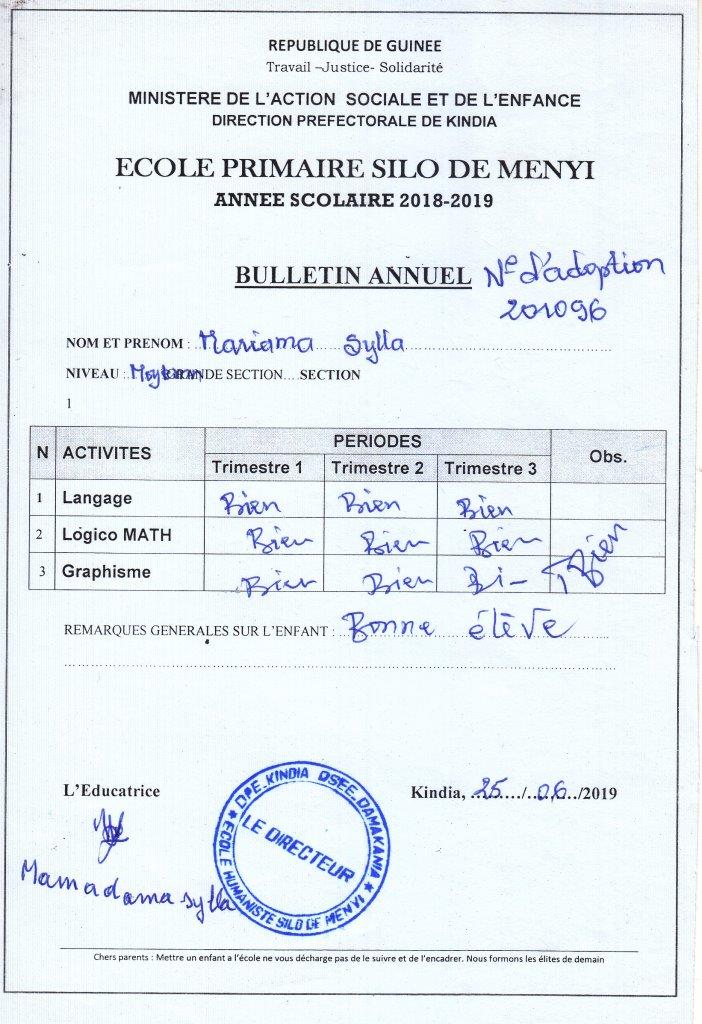 REPUBLIQUE DE GUINEE
Travail –Justice- Solidarité
MINISTERE DE L'ACTION SOCIALE ET DE L'ENFANCE
DIRECTION PREFECTORALE DE KINDIA
ECOLE PRIMAIRE SILO DE MENYI
ANNEE SCOLAIRE 2018-2019
BULLETIN ANNUEL N° d'adoption
201096
NOM ET PRENOM : Mariama Sylla
NIVEAU : GRANDE SECTION....SECTION
1
N ACTIVITES PERIODES Obs.
Trimestre 1 Trimestre 2 Trimestre 3
1 Langage Bien Bien Bien
2 Lógico MATH Bien Bien Bien
3 Graphisme Bien Bien Bi- TBien
REMARQUES GENERALES SUR L'ENFANT : Bonne élève
L'Educatrice
Kindia, 25/06/2019
Mamadama Sylla
DPE_KINDIA DSEE_DAMAKANIA
LE DIRECTEUR
ECOLE HUMANISTE SILO DE MENYI
Chers parents : Mettre un enfant a l'école ne vous décharge pas de le suivre et de l'encadrer. Nous formons les élites de demain